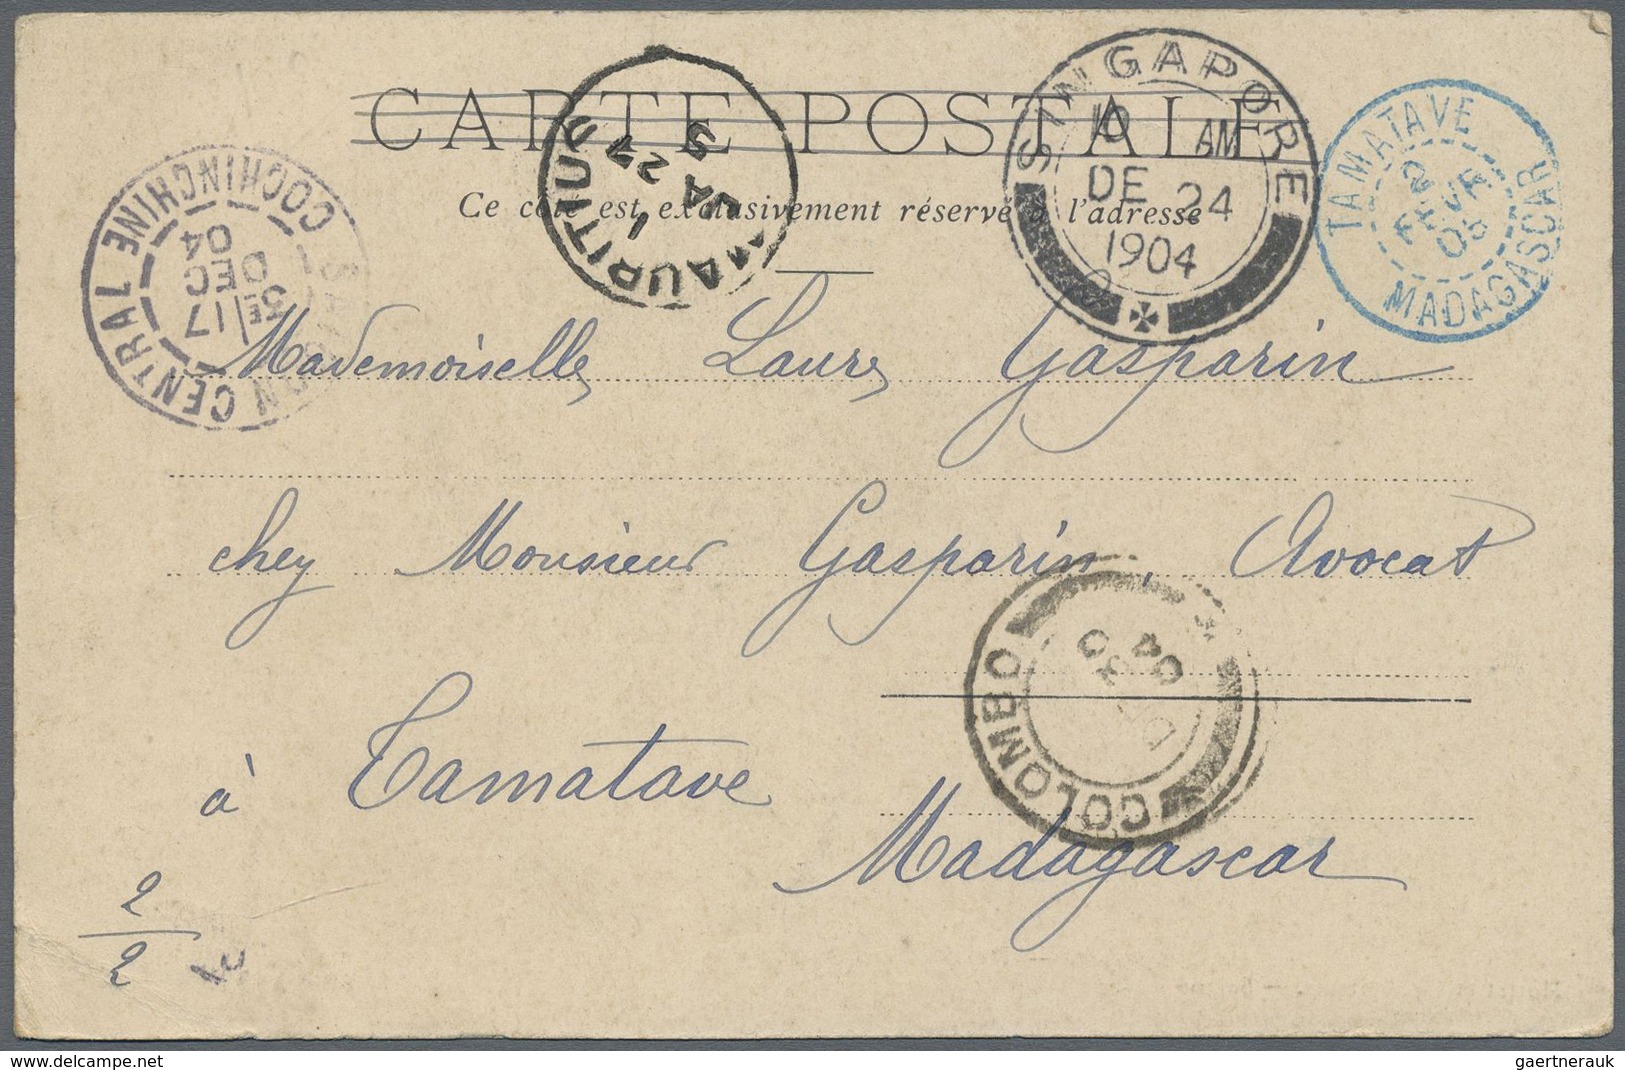 CARTE POSTALE
Ce côté est exclusivement réservé à l'adresse
SAIGON CENTRAL
COCHINCHINE
3E/17
DEC
04
MAURITIUS
1
JA 27
5
SINGAPORE
10 AM
DE 24
1904
TAMATAVE
2
FEVR
05
MADAGASCAR
Mademoiselle Laure Gasparin
chez Monsieur Gasparin, Avocat
COLOMBO
30
04
à Tamatave
Madagascar
2
2
gaertnerauk